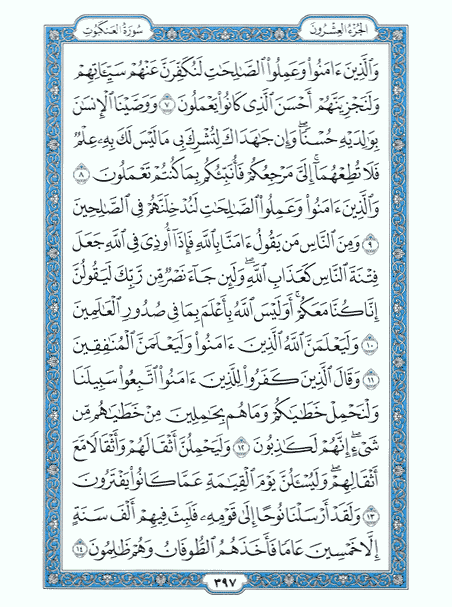 الجزء العشرون
سورة العنكبوت
وَالَّذِينَ ءَامَنُوا۟ وَعَمِلُوا۟ الصَّـٰلِحَـٰتِ لَنُكَفِّرَنَّ عَنْهُمْ سَيِّـَٔاتِهِمْ
وَلَنَجْزِيَنَّهُمْ أَحْسَنَ الَّذِى كَانُوا۟ يَعْمَلُونَ ٧ وَوَصَّيْنَا الْإِنسَـٰنَ
بِوَٰلِدَيْهِ حُسْنًا ۖ وَإِن جَـٰهَدَاكَ لِتُشْرِكَ بِى مَا لَيْسَ لَكَ بِهِۦ عِلْمٌ
فَلَا تُطِعْهُمَا ۚ إِلَىَّ مَرْجِعُكُمْ فَأُنَبِّئُكُم بِمَا كُنتُمْ تَعْمَلُونَ ٨
وَالَّذِينَ ءَامَنُوا۟ وَعَمِلُوا۟ الصَّـٰلِحَـٰتِ لَنُدْخِلَنَّهُمْ فِى الصَّـٰلِحِينَ
٩ وَمِنَ النَّاسِ مَن يَقُولُ ءَامَنَّا بِاللَّهِ فَإِذَآ أُوذِىَ فِى اللَّهِ جَعَلَ
فِتْنَةَ النَّاسِ كَعَذَابِ اللَّهِ ۖ وَلَئِن جَآءَ نَصْرٌ مِّن رَّبِّكَ لَيَقُولُنَّ
إِنَّا كُنَّا مَعَكُمْ ۚ أَوَلَيْسَ اللَّهُ بِأَعْلَمَ بِمَا فِى صُدُورِ الْعَـٰلَمِينَ
١٠ وَلَيَعْلَمَنَّ اللَّهُ الَّذِينَ ءَامَنُوا۟ وَلَيَعْلَمَنَّ الْمُنَـٰفِقِينَ
١١ وَقَالَ الَّذِينَ كَفَرُوا۟ لِلَّذِينَ ءَامَنُوا۟ اتَّبِعُوا۟ سَبِيلَنَا
وَلْنَحْمِلْ خَطَـٰيَـٰكُمْ وَمَا هُم بِحَـٰمِلِينَ مِنْ خَطَـٰيَـٰهُم مِّن
شَىْءٍ ۖ إِنَّهُمْ لَكَـٰذِبُونَ ١٢ وَلَيَحْمِلُنَّ أَثْقَالَهُمْ وَأَثْقَالًا مَّعَ
أَثْقَالِهِمْ ۖ وَلَيُسْـَٔلُنَّ يَوْمَ الْقِيَـٰمَةِ عَمَّا كَانُوا۟ يَفْتَرُونَ
١٣ وَلَقَدْ أَرْسَلْنَا نُوحًا إِلَىٰ قَوْمِهِۦ فَلَبِثَ فِيهِمْ أَلْفَ سَنَةٍ
إِلَّا خَمْسِينَ عَامًا فَأَخَذَهُمُ الطُّوفَانُ وَهُمْ ظَـٰلِمُونَ ١٤
٣٩٧